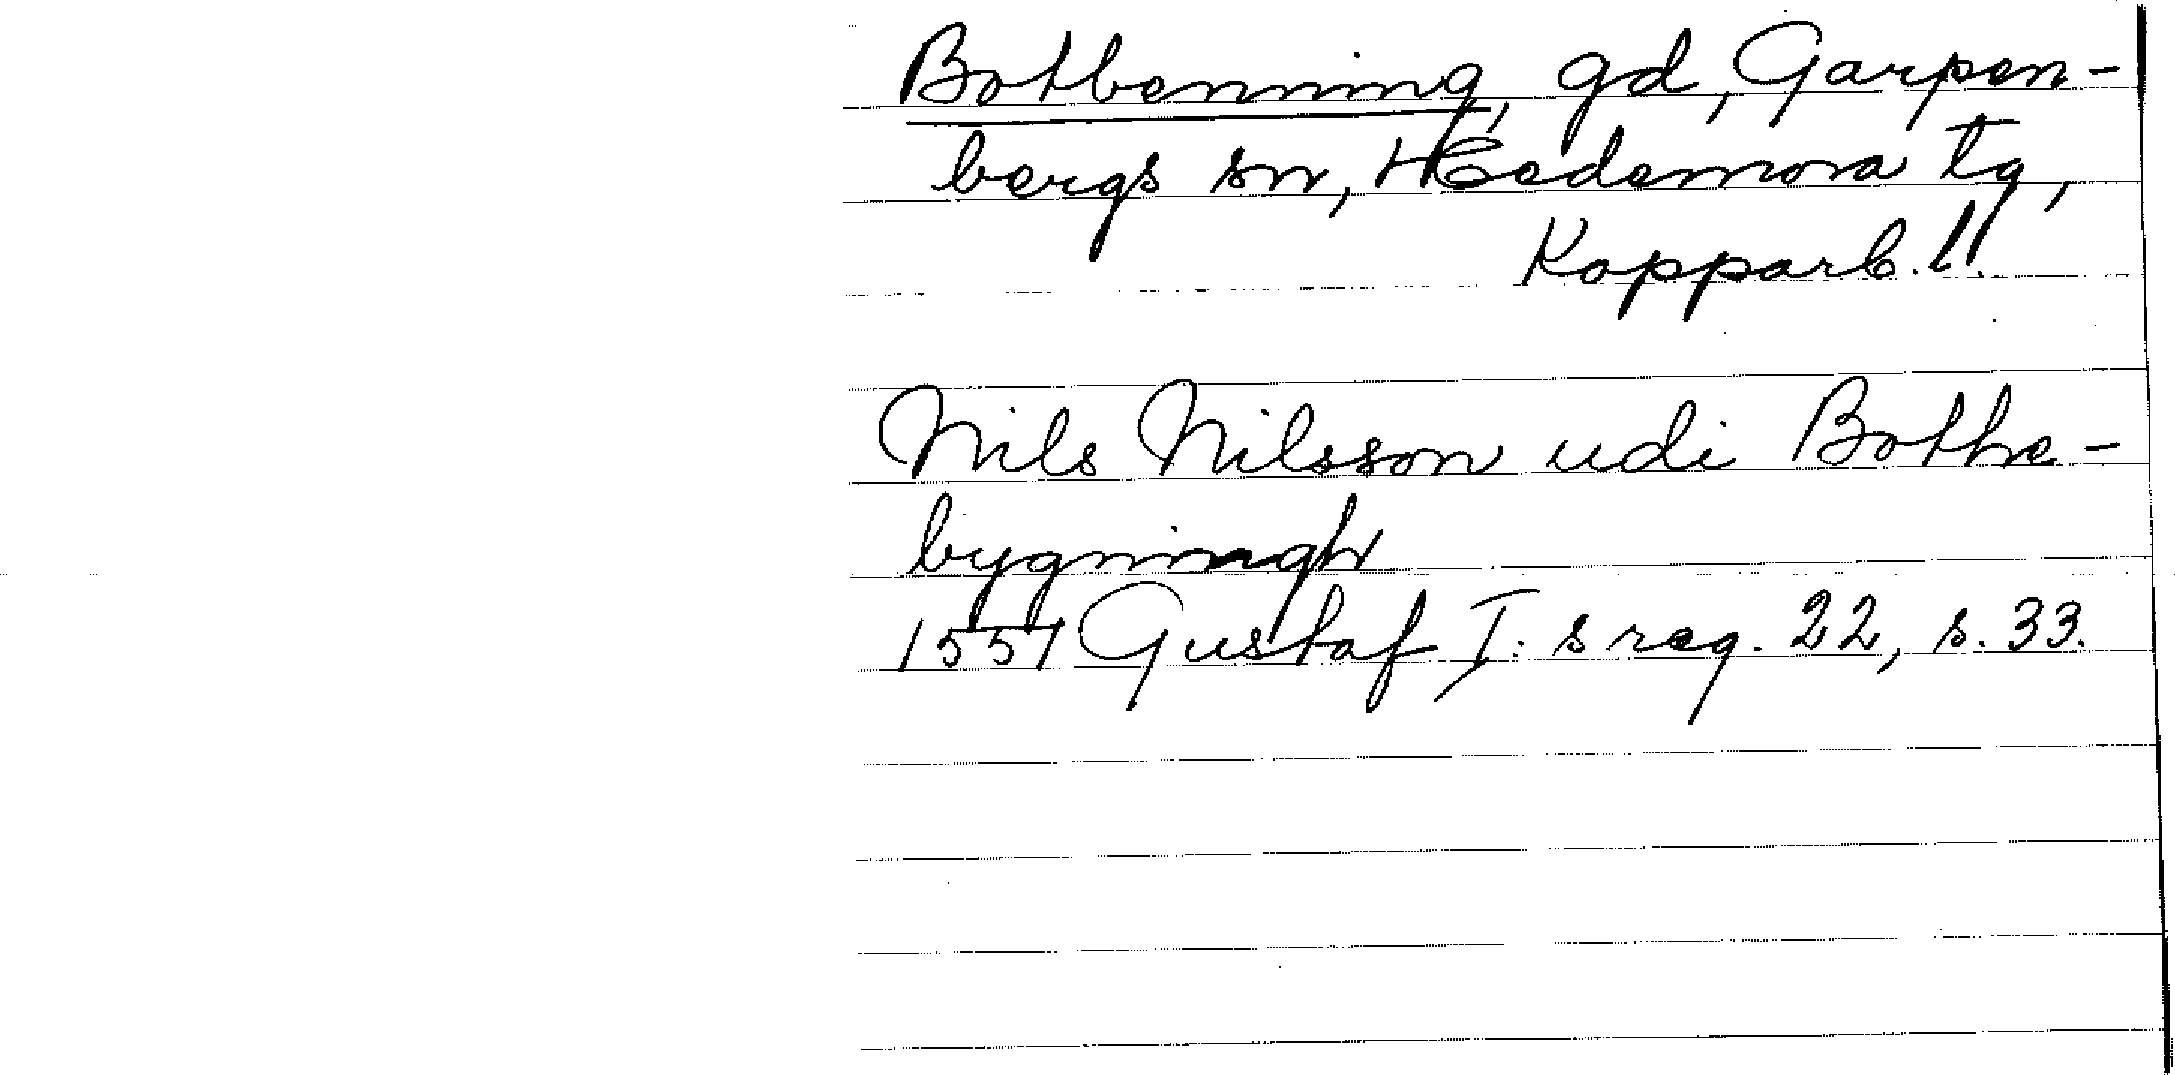 Botbenning, gd, Garpen-
bergs sn, Hedemora tg,
Kopparb. l.
Nils Nilsson udi Bothe-
bygningh
1551 Gustaf I:s reg. 22, s. 33.